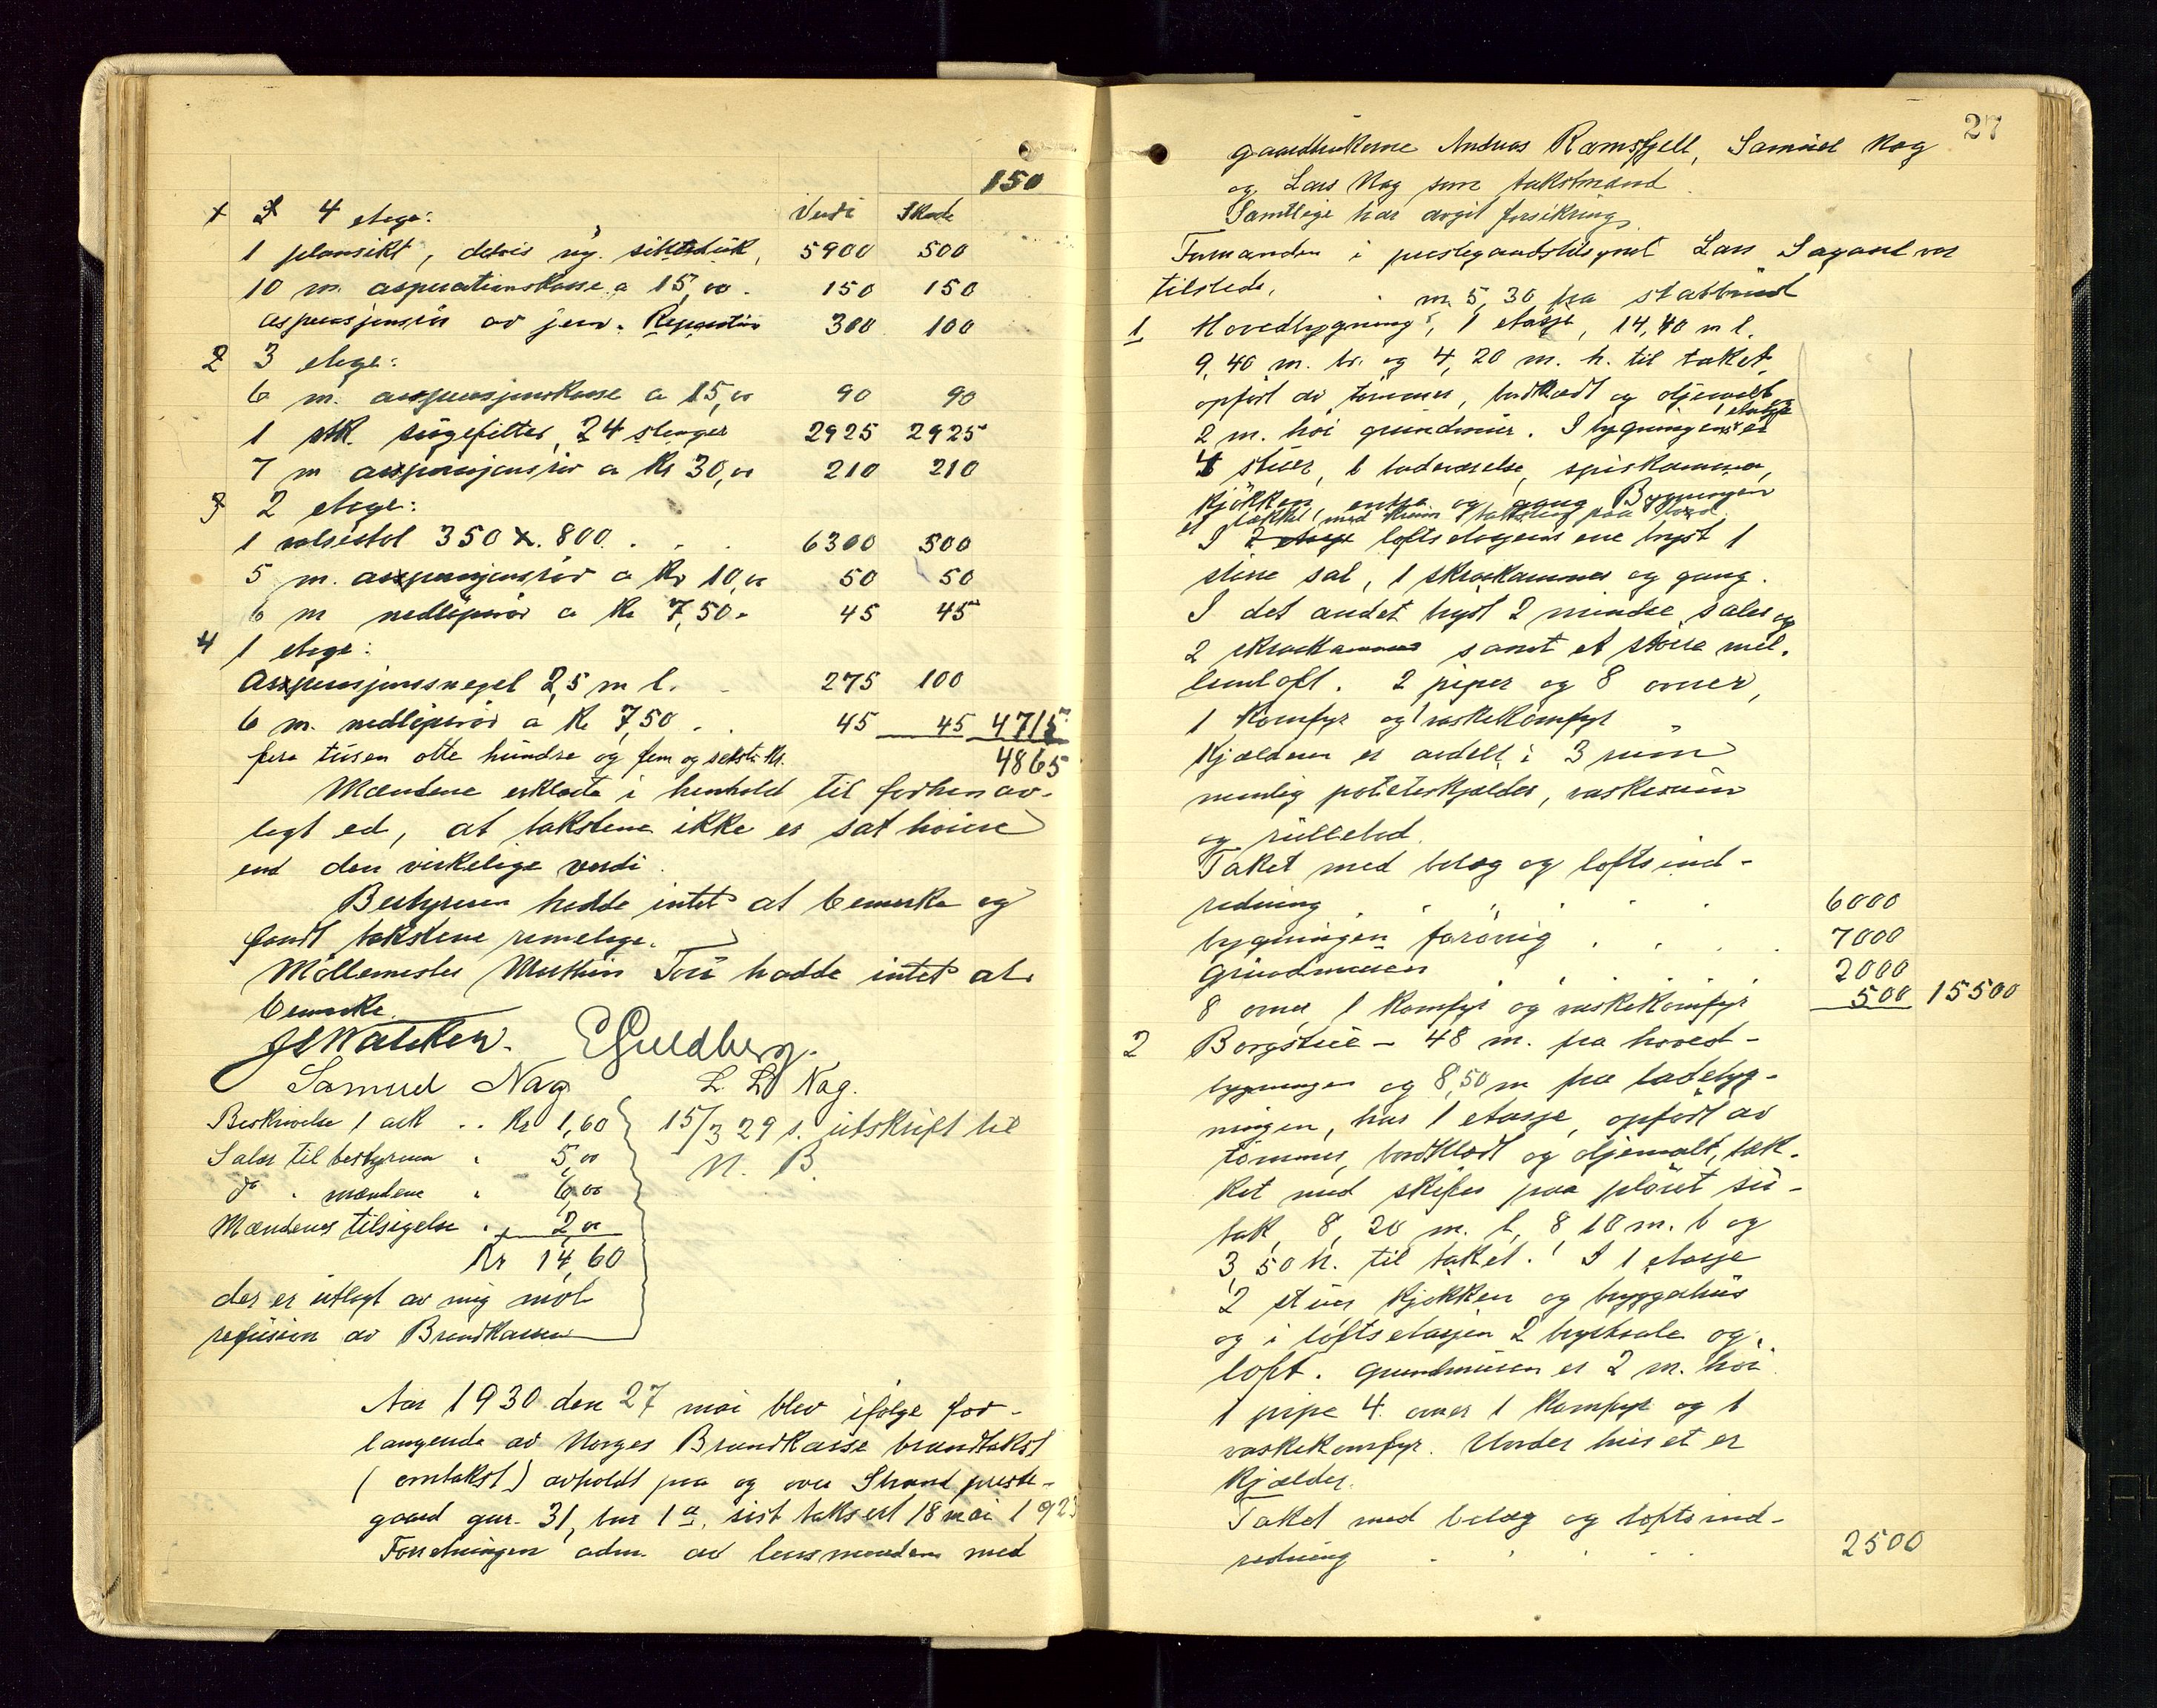 150
Verdi Skade
1 4 etage:
1 plansikt, delvis ny sikteduk, 5900 500
10 m. aspirationskasse a 15,00. 150 150
Aspirasjonsrör av jern. Reparation 300 100
2 3 etage:
6 m. aspirasjonskasse a 15,00 90 90
1 stk. sugefilter, 24 slanger 2925 2925
7 m aspirasjonsrör a Kr 30,00 210 210
3 2 etage:
1 valsestol 350 x 800 . . . 6300 500
5 m. aspirasjonsrör a Kr 10,00 50 50
6 m nedlöpsrör a Kr 7,50. 45 45
4 1 etage:
Aspirasjonssnegel 2,5 m l. 275 100
6 m. nedlöpsrör a Kr 7,50 . 45 45 4715
fire tusen otte hundre og fem og seksti Kr. 4865
Mændene erklærte i henhold til forhen av-
lagt ed, at takstene ikke er sat höiere
end den virkelige verdi.
Bestyreren hadde intet at bemerke og
fandt takstene rimelige.
Möllemester Torü hadde intet at
bemerke.
E Guldberg.
Samuel Nag L. L. Nag.
Beskrivelse 1 ark .. Kr 1,60
Salær til bestyreren " 5,00
do " mændene " 6,00
Mændenes tilsigelse " 2,00
Kr 14,60
der er utlagt av mig mot
refusion av Brandkassen
15/3 29 s. utskrift til
N. B.
Aar 1930 den 27 mai blev ifölge for-
langende av Norges Brandkasse brandtakst
(omtakst) avholdt paa og over Strand preste-
gaard gnr. 31, bnr 1 a, sist taksert 18 mai 1923
Forretningen adm. av lensmanden med
27
gaardbrukerne Andreas Ramsfjell, Samuel Nag
og Lars Nag som takstmænd.
Samtlige har avgit forsikring.
Formanden i prestegaardstilsynet Lars Sagard var
tilstede.
m. 5,30 fra stabburet
1 Hovedbygning, 1 etasje, 14,40 m l.
9,40 m. br. og 4,20 m. h. til taket,
opfört av tömmer, bordklædt og oljemalt,
2 m. höi grundmur. I bygningens 1 etasje er
4 stuer, 1 badeværelse, spiskammer,
kjökken, entre og gang. Bygningen
er tækket med
I 2 etage loftsetagens ene bryst 1
större sal, 1 skraakammer og gang.
I det andet bryst 2 mindre saler og
2 skraakammer samt et större mel-
lemloft. 2 piper og 8 ovner,
1 komfyr og 1 vaskekomfyr
Kjælderen er avdelt i 3 rum
nemlig poteteskjelder, vaskerum
og rullebod.
Taket med belæg og loftsind-
redning . . . . . 6000
bygningen forövrig . . . . 7000
Grundmuren . . . . 2000
8 ovner 1 komfyr og vaskekomfyr 500 15500
2 Borgstue - 48 m. fra hoved-
bygningen og 8,50 m fra ladebyg-
ningen, har 1 etasje, opfört av
tömmer, bordklædt og oljemalt, tæk-
ket med skifer paa plöiet su-
tak, 8,20 m. l, 8,10 m. b og
3,50 h. til taket. I 1 etasje
2 stuer kjökken og bryggerhus
og i loftsetasjen 2 brystsale og
loft. Grundmuren er 2 m. höi
1 pipe 4 ovner 1 komfyr og 1
vaskekomfyr. Under huset er
kjælder.
Taket med belæg og loftsind-
redning . . . . 2500